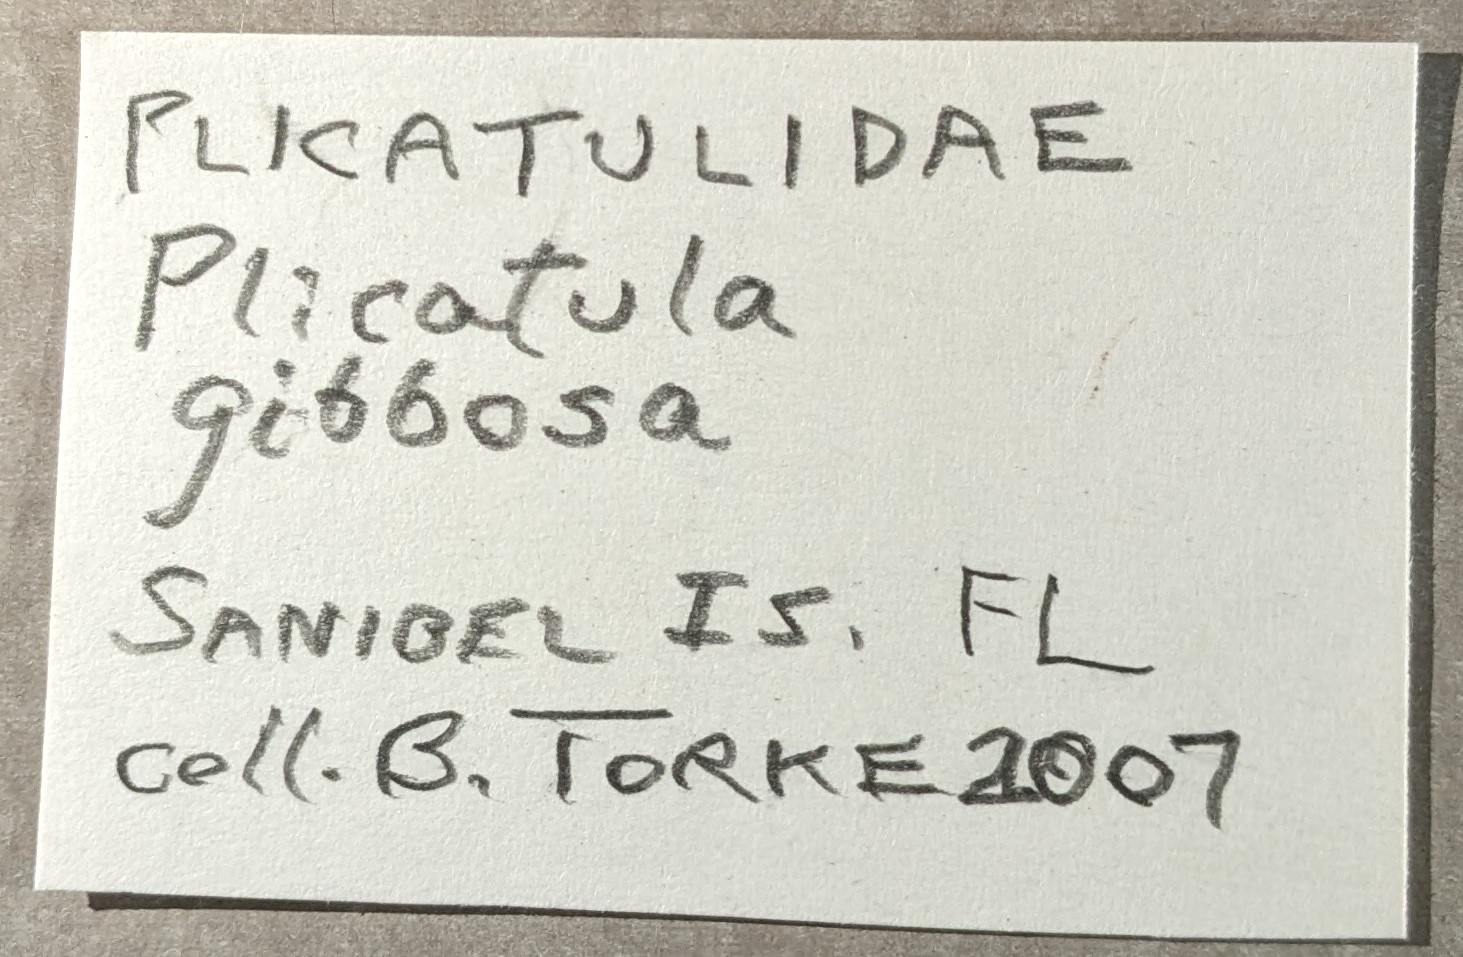 PLICATULIDAE
Plicatula
gibbosa
SANIBEL IS. FL
coll. B. TORKE 2007